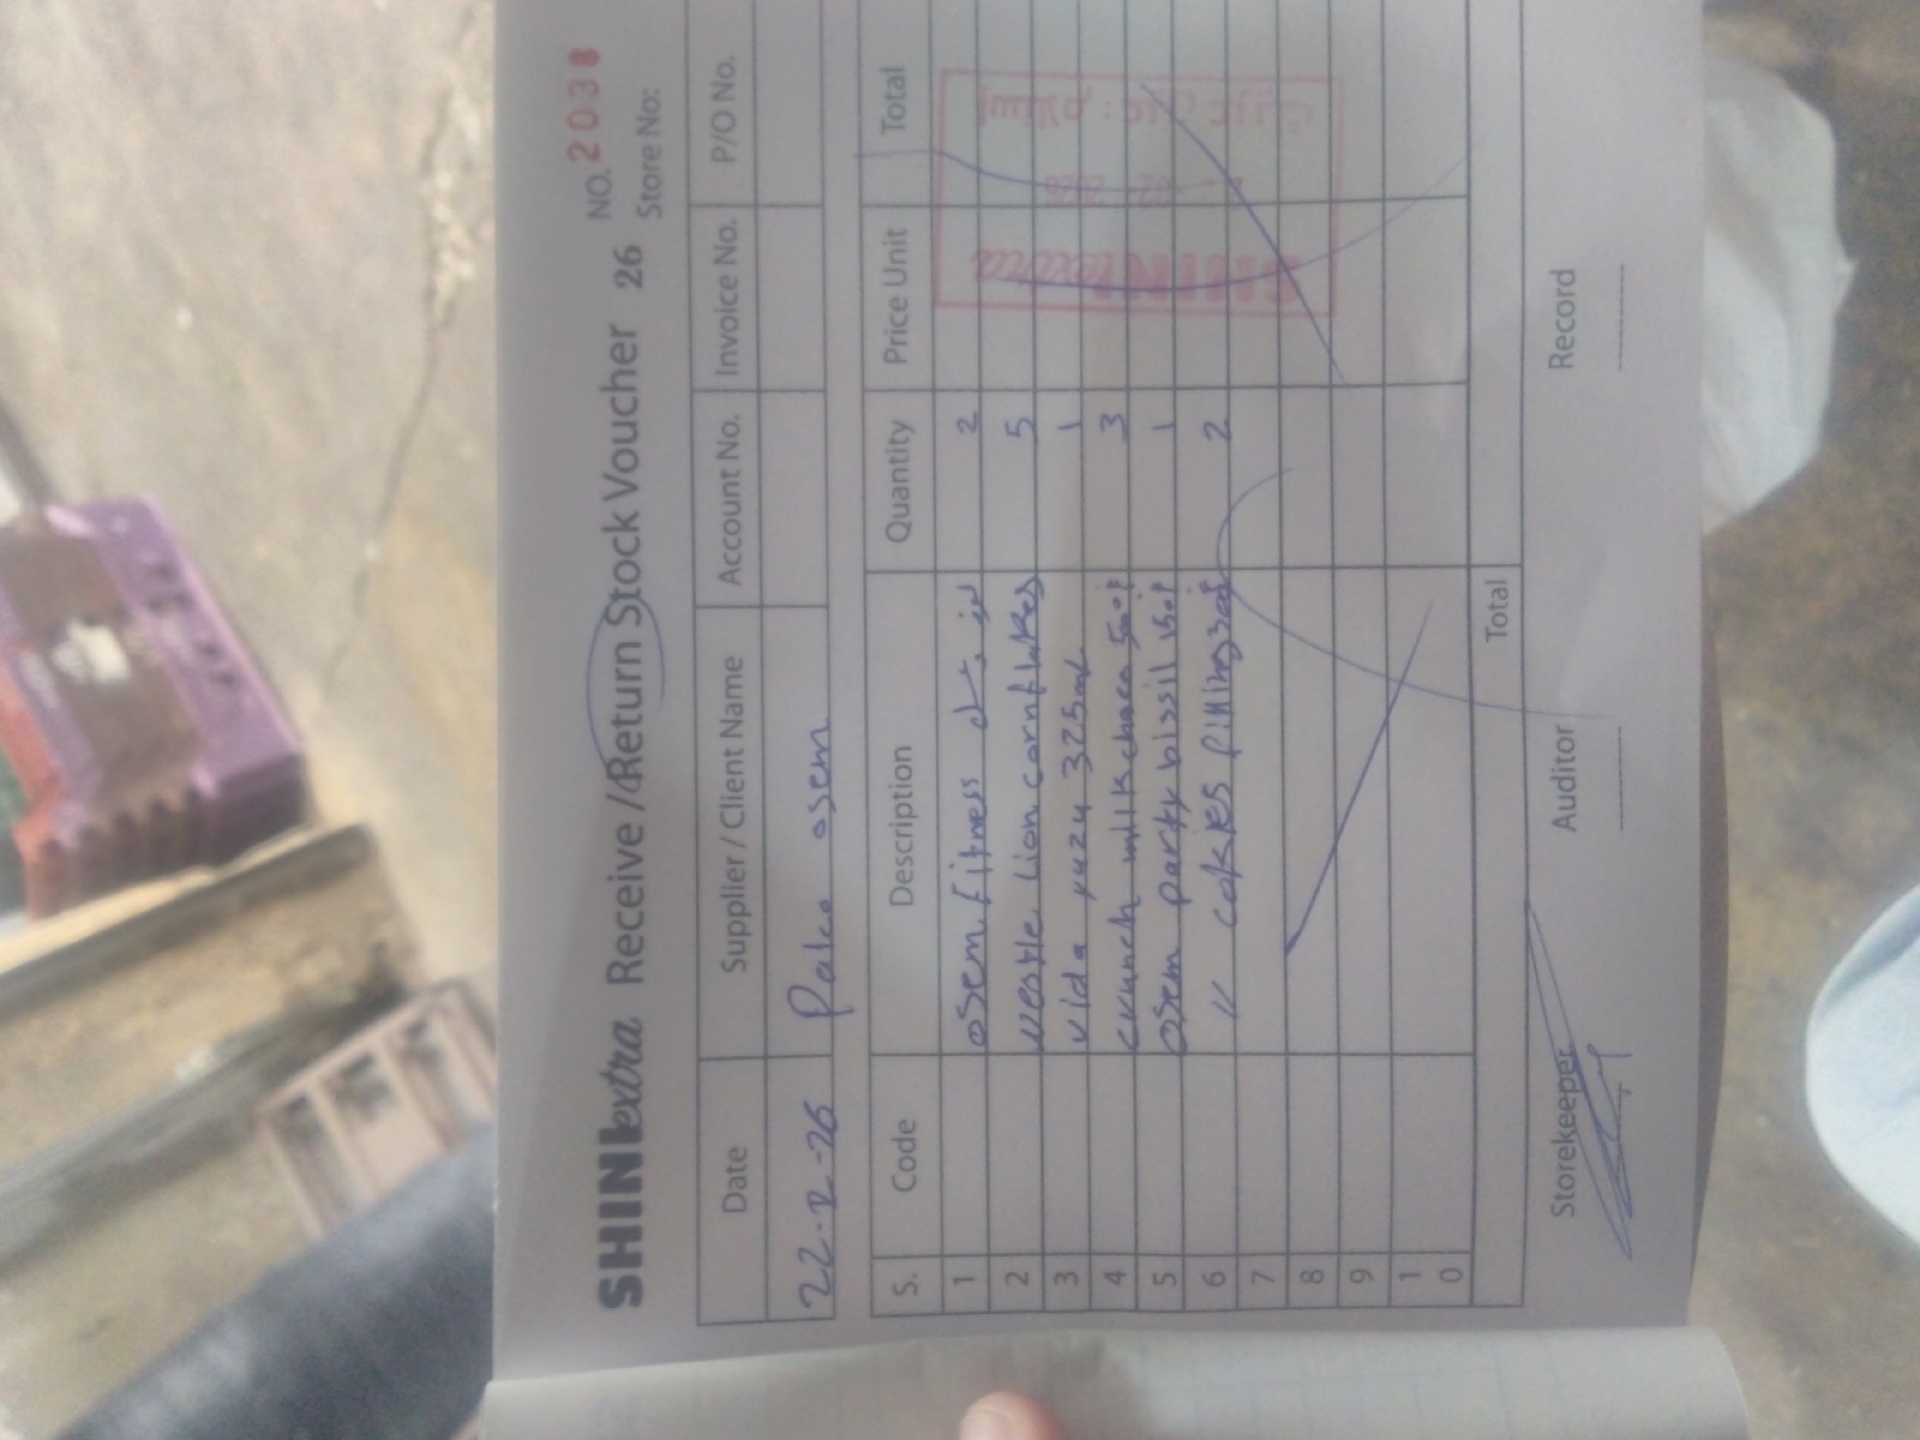 SHINextra Receive / Return Stock Voucher 26 NO. 2038
Store No:
Date Supplier / Client Name Account No. Invoice No. P/O No.
osem
S. Code Description Quantity Price Unit Total
1 osem fitness 2
2 Nestle Lion cornflakes 5
3 vida yuzu 325ml 1
4 crunch milk choco 3
5 osem party bissli 1
6 " cokies filling 2
7
8
9
1
0
SHINextra
Total
Storekeeper Auditor Record